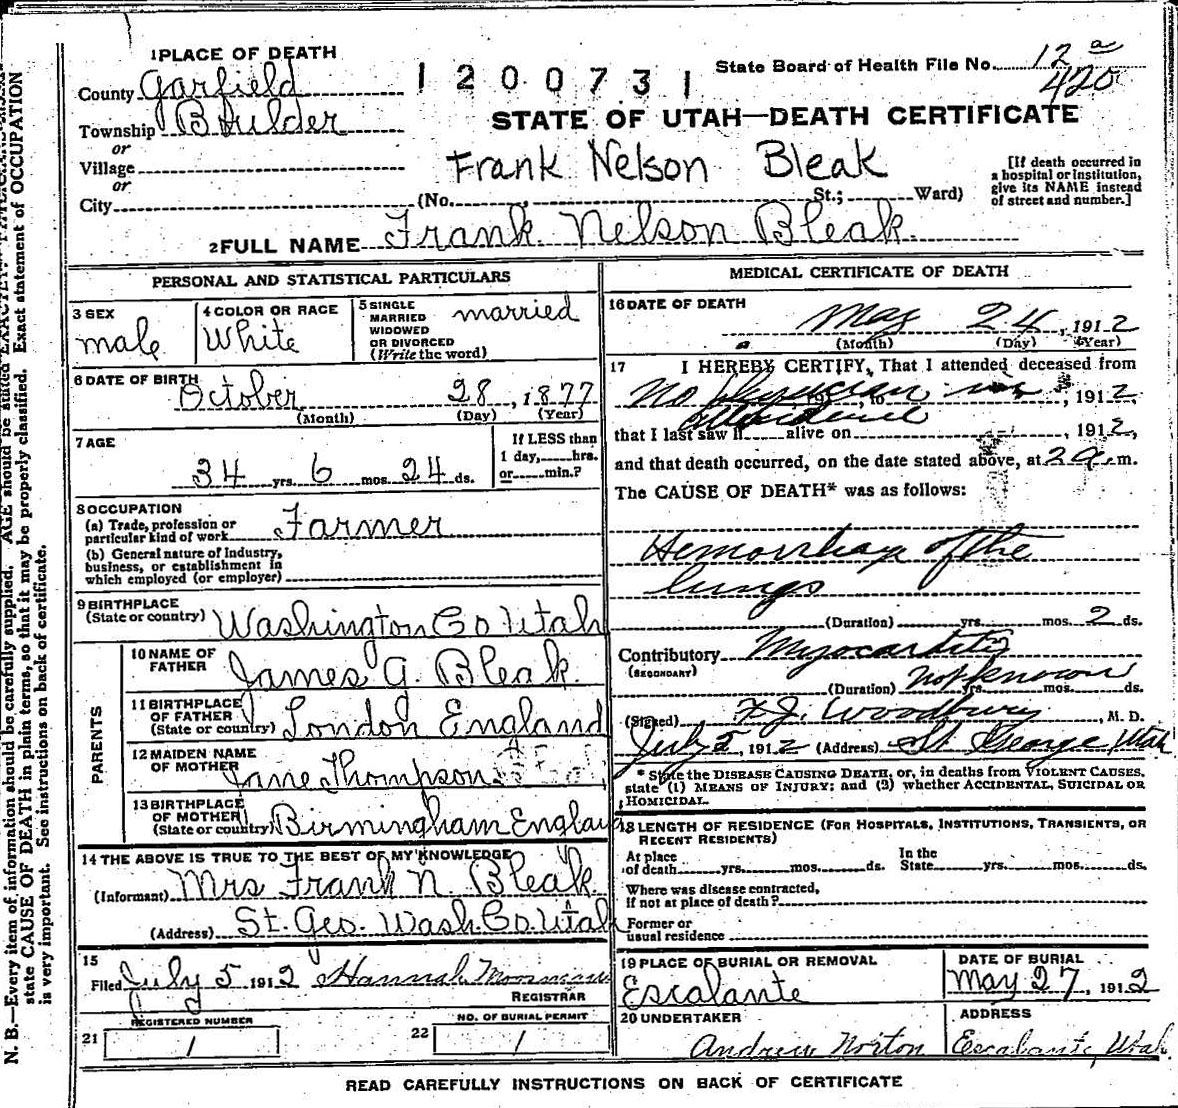 1 PLACE OF DEATH
County Garfield
Township Boulder
or
Village
or
City
1200731
State Board of Health File No. 12 a
420
STATE OF UTAH—DEATH CERTIFICATE
Frank Nelson Bleak
(No. St.; Ward)
[If death occurred in
a hospital or institution,
give its NAME instead
of street and number.]
2 FULL NAME Frank Nelson Bleak.
PERSONAL AND STATISTICAL PARTICULARS
3 SEX
male
4 COLOR OR RACE
White
5 SINGLE
MARRIED
WIDOWED
OR DIVORCED
(Write the word)
married
6 DATE OF BIRTH
October 28, 1877
(Month) (Day) (Year)
7 AGE
34 yrs. 6 mos. 24 ds.
If LESS than
1 day, hrs.
or min.?
8 OCCUPATION
(a) Trade, profession or
particular kind of work Farmer
(b) General nature of Industry,
business, or establishment in
which employed (or employer)
9 BIRTHPLACE
(State or country) Washington Co Utah
PARENTS
10 NAME OF
FATHER James G. Bleak.
11 BIRTHPLACE
OF FATHER
(State or country) London England
12 MAIDEN NAME
OF MOTHER Jane Thompson
13 BIRTHPLACE
OF MOTHER
(State or country) Birmingham England
14 THE ABOVE IS TRUE TO THE BEST OF MY KNOWLEDGE
(Informant) Mrs Frank N. Bleak
(Address) St. Geo. Wash. Co. Utah
15
Filed July 5 1912 Hannah
REGISTRAR
REGISTERED NUMBER
21 1
NO. OF BURIAL PERMIT
22 1
MEDICAL CERTIFICATE OF DEATH
16 DATE OF DEATH
May 24, 1912
(Month) (Day) (Year)
17 I HEREBY CERTIFY, That I attended deceased from
No Physician in, 1912
attendance
that I last saw h alive on, 1912,
and that death occurred, on the date stated above, at 2 a. m.
The CAUSE OF DEATH* was as follows:
Hemorrhag of the
lungs
(Duration) yrs. mos. 2 ds.
Contributory Myocarditis
(SECONDARY)
(Duration) Not known yrs. mos. ds.
(Signed) F. J. Woodbury, M. D.
July 5, 1912 (Address) St George Utah
* State the DISEASE CAUSING DEATH, or, in deaths from VIOLENT CAUSES,
state (1) MEANS OF INJURY; and (2) whether ACCIDENTAL, SUICIDAL OR
HOMICIDAL.
18 LENGTH OF RESIDENCE (FOR HOSPITALS, INSTITUTIONS, TRANSIENTS, OR
RECENT RESIDENTS)
At place
of death yrs. mos. ds.
In the
State yrs. mos. ds.
Where was disease contracted,
if not at place of death?
Former or
usual residence
19 PLACE OF BURIAL OR REMOVAL
Escalante
DATE OF BURIAL
May 27, 1912
20 UNDERTAKER
Andrew Norton
ADDRESS
Escalante, Utah.
READ CAREFULLY INSTRUCTIONS ON BACK OF CERTIFICATE
N. B.—Every item of information should be carefully supplied. AGE should be stated EXACTLY.
state CAUSE OF DEATH in plain terms, so that it may be properly classified. Exact statement of OCCUPATION
is very important. See instructions on back of certificate.